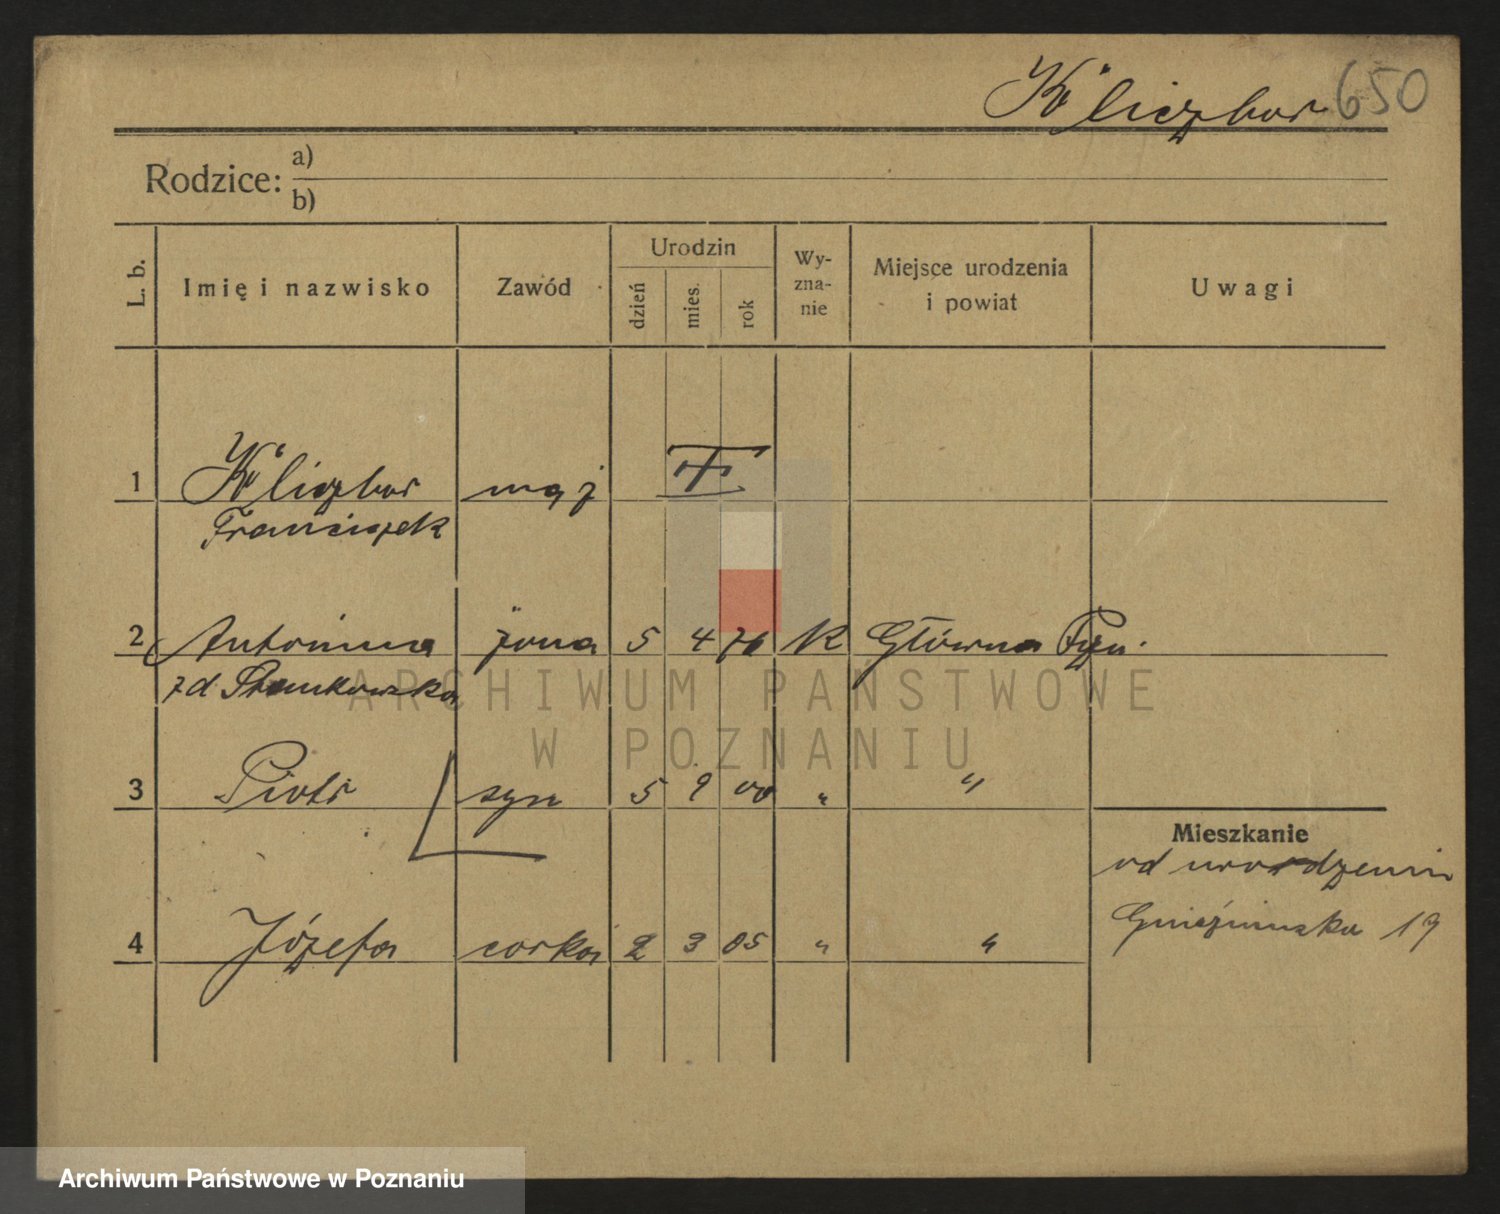 Kliczbor 650
Rodzice: a)
b)
L. b. Imię i nazwisko Zawód Urodzin dzień mies. rok Wy-zna-nie Miejsce urodzenia i powiat Uwagi
1 Kliczbor mąż
Franciszek
2 Antonina żona 5 4 76 K Główna Pzn.
zd
ARCHIWUM PAŃSTWOWE
W POZNANIU
3 Piotr syn 5 9 00 " "
Mieszkanie
od urodzenia
4 Józefa corka 2 3 05 " "
Gnieźnieńska 19
Archiwum Państwowe w Poznaniu